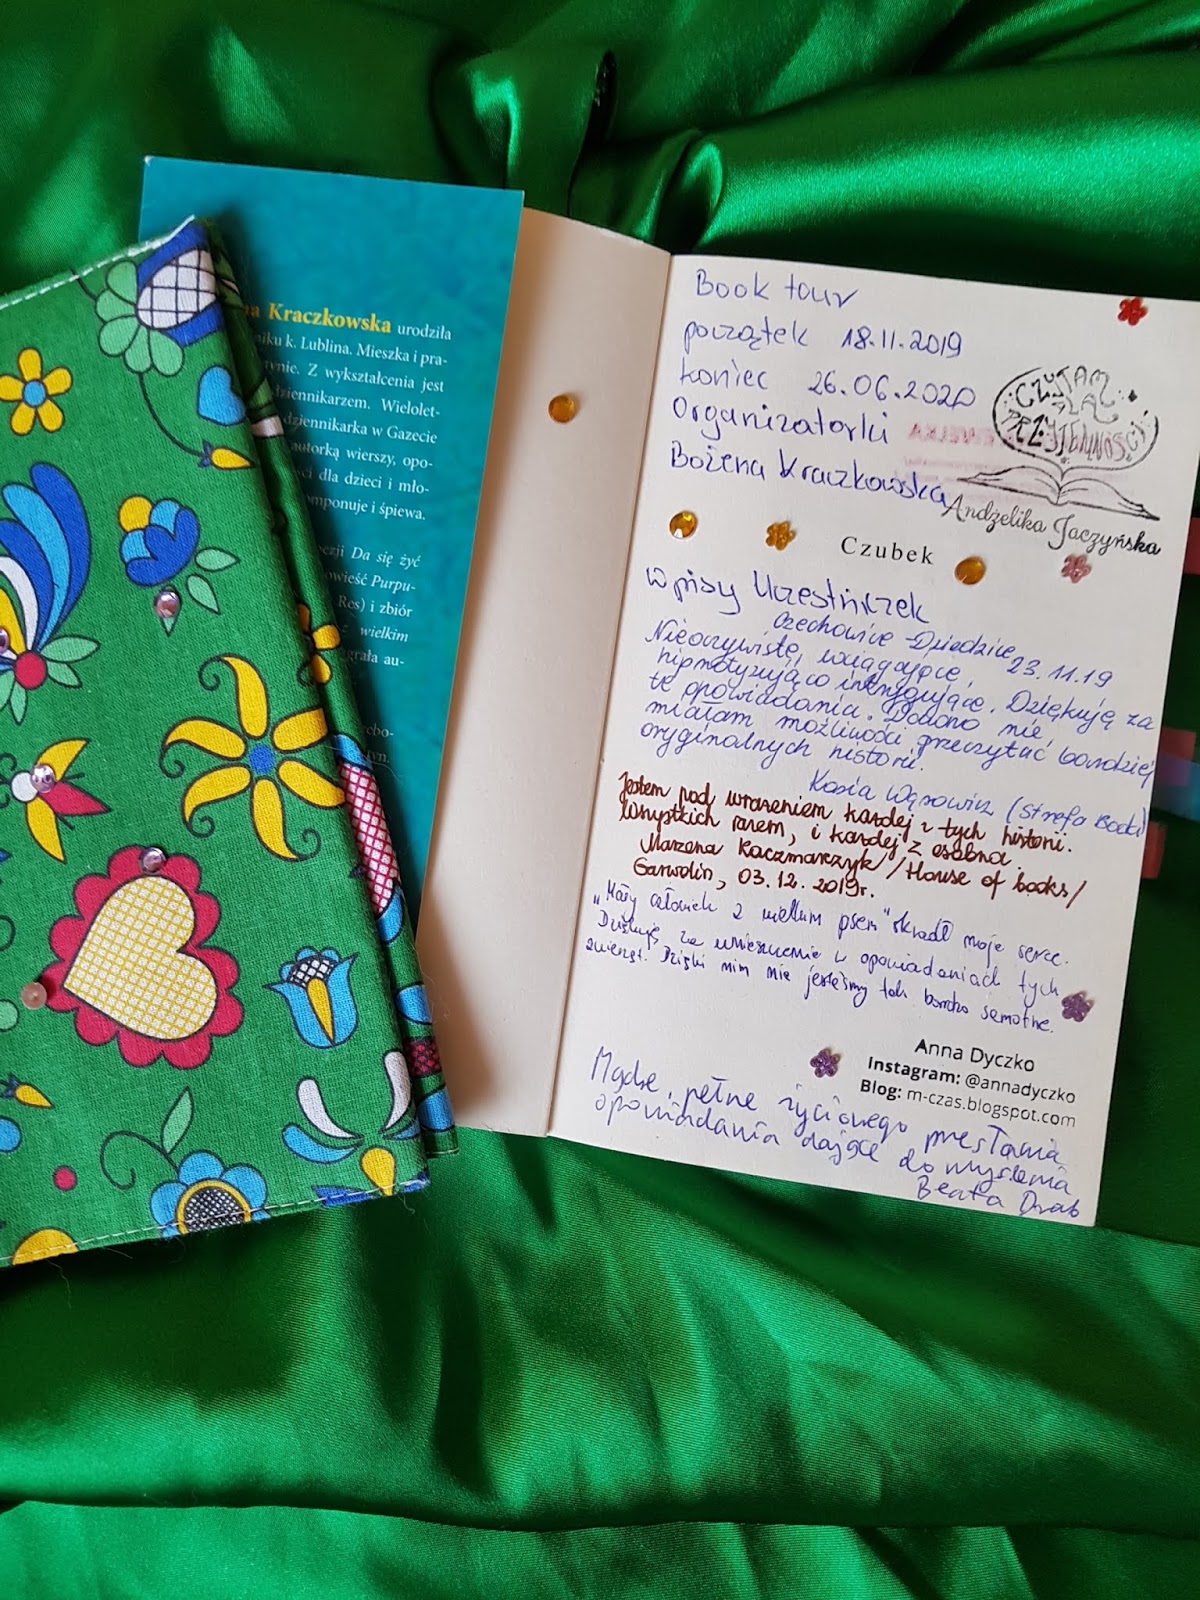 na Kraczkowska urodziła
niku k. Lublina. Mieszka i pra-
ynie. Z wykształcenia jest
dziennikarzem. Wielolet-
dziennikarka w Gazecie
autorką wierszy, opo-
ści dla dzieci i mło-
omponuje i śpiewa.
ezji Da się żyć
powieść Purpu-
Res) i zbiór
z wielkim
grała au-
cbo-
tyn.
Book tour
początek 18.11.2019
koniec 26.06.2020
Organizatorki
Bożena Kraczkowska
CZYTAM
DLA
PRZYJEMNOŚCI
Andżelika Jaczyńska
Czubek
Wpisy Uczestniczek
Czechowice-Dziedzice
23.11.19
Nieoczywiste, wciągające,
hipnotyzująco intrygujące. Dziękuję za
te opowiadania. Dawno nie
miałam możliwości przeczytać bardziej
oryginalnych historii.
Kasia Wąsowicz (Strefa Book)
Jestem pod wrażeniem każdej z tych historii.
Wszystkich razem, i każdej z osobna.
Marzena Kaczmarczyk /House of books/
Garwolin, 03.12.2019r.
"Mały człowiek z wielkim psem" skradł moje serce.
Dziękuję za umieszczenie w opowiadaniach tych
zwierząt. Dzięki nim nie jesteśmy tak bardzo samotne.
Anna Dyczko
Instagram: @annadyczko
Blog: m-czas.blogspot.com
Mądre, pełne życiowego przesłania
opowiadania dające do myślenia
Beata Drab